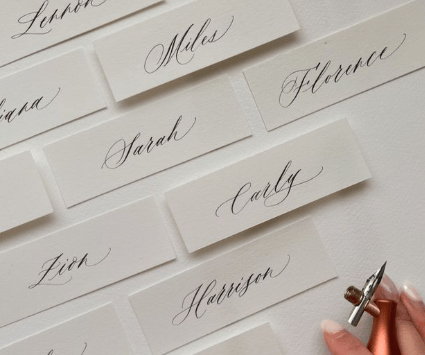 Lennon
Miles
Florence
Sarah
Carly
Zion
Harrison